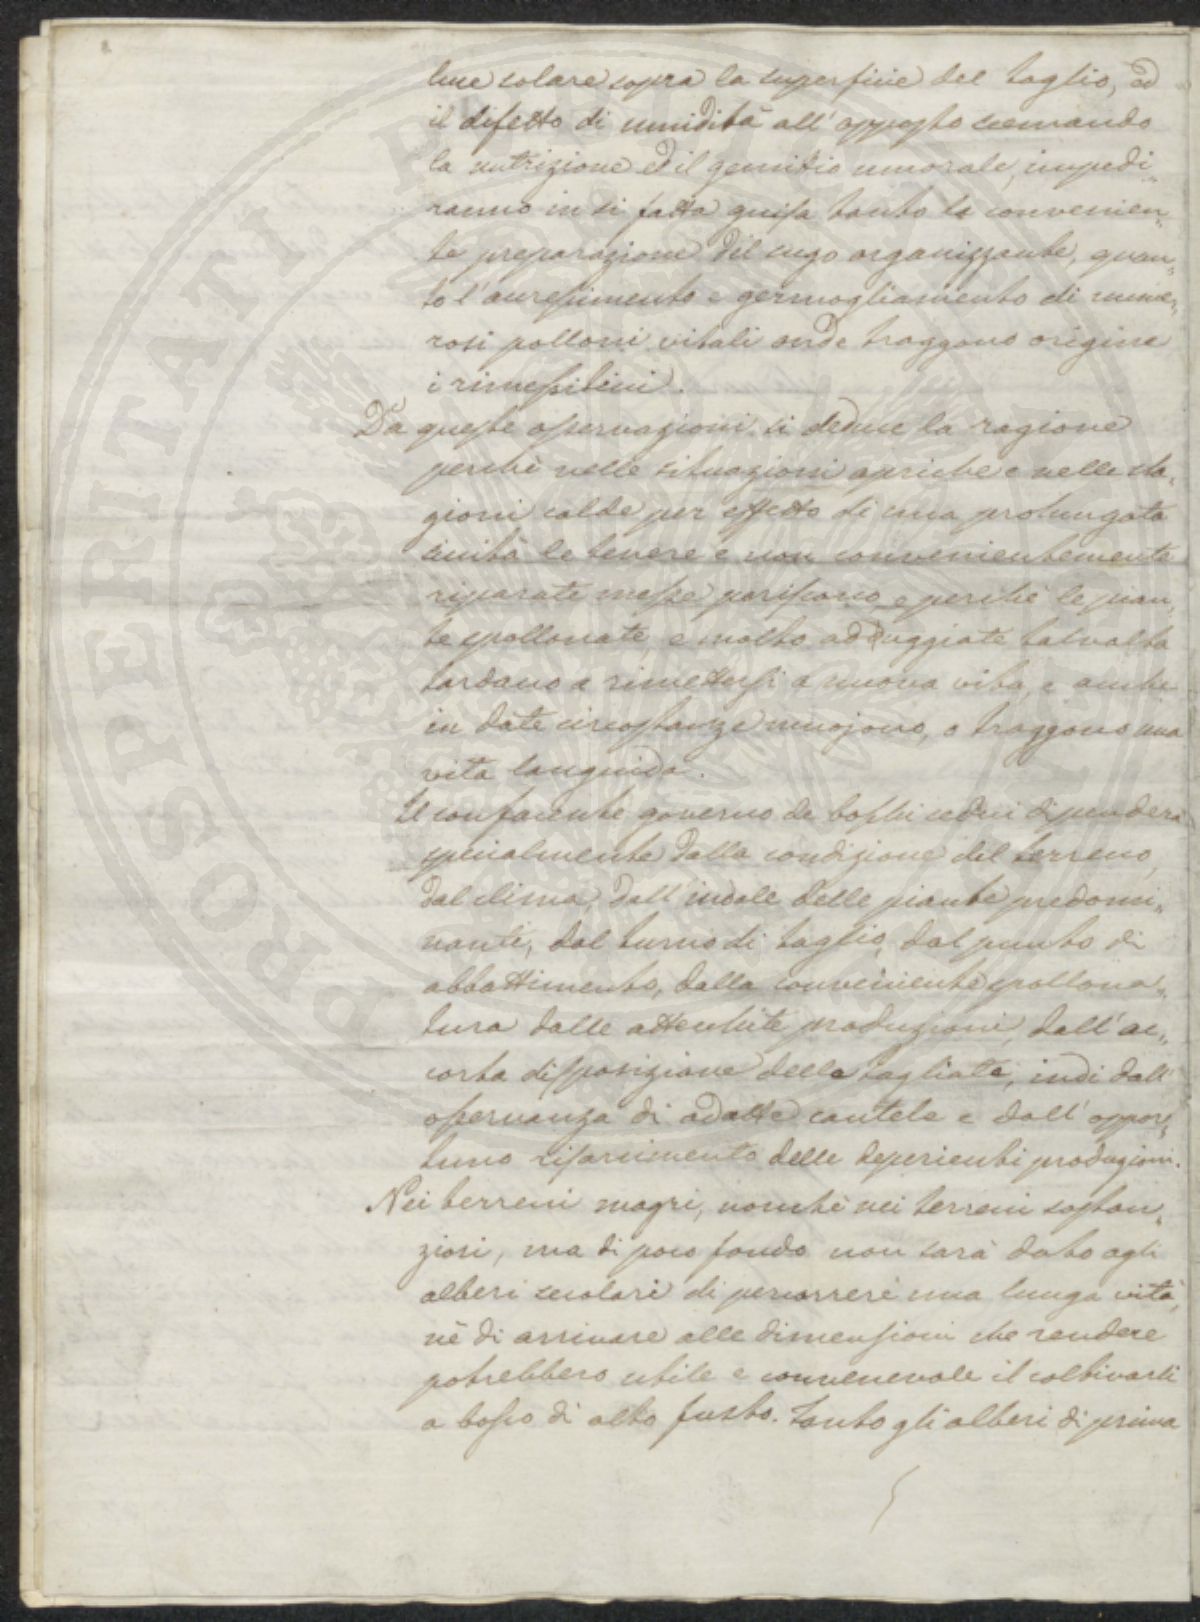 luce solare sopra la superficie del taglio, ed
il difetto di umidità all' opposto scemando
la nutrizione ed il gemitio umorale, impedi„
ranno in si fatta guisa tanto la convenien„
te preparazione del sugo organizzante, quan„
to l' aurescimento e germogliamento di nume„
rosi polloni vitali onde traggono origine
i rimessitici.
Da queste osservazioni si deduce la ragione
perchè nelle situazioni apriche e nelle sta„
gioni calde per effetto di una prolungata
siccità le tenere e non convenientemente
riparate messe periscono, e perchè le pian„
te spollonate, e molto aduggiate talvolta
tardano a rimettersi a nuova vita, e anche
in date circostanze muojono, o traggono una
vita languida.
Il confacente governo de boschi cedui dipenderà
specialmente dalla condizione del terreno,
dal clima, dall' indole delle piante predomi„
nanti, dal turno di taglio, dal punto di
abbattimento, dalla conveniente spollona„
tura dalle attenlite produzioni, dall' ac„
corta disposizione delle tagliate, indi dall'
osservanza di adatte cautele e dall' oppor„
tuno risarcimento delle deperienti produzioni.
Nei terreni magri, nonchè nei terreni sostan„
ziosi, ma di poco fondo non sarà dato agli
alberi secolari di percorrere una lunga vita,
nè di arrivare alle dimensioni che rendere
potrebbero utile e convenevole il coltivarli
a bosco di alto fusto. Tanto gli alberi di prima
PROSPERITATI PUBLICAE